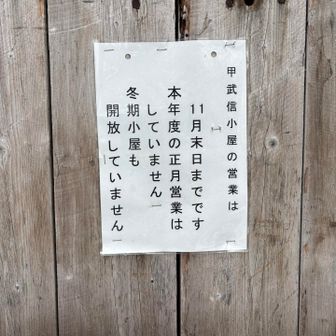 甲武信小屋の営業は
11月末日までです
本年度の正月営業は
していません
冬期小屋も
開放していません